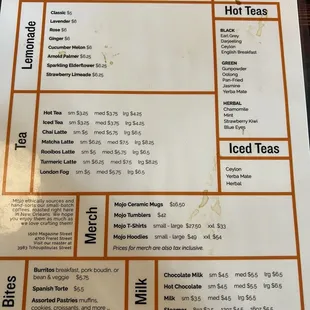 Lemonade
Classic $5
Lavender $6
Rose $6
Ginger $6
Cucumber Melon $6
Arnold Palmer $6.25
Sparkling Elderflower $6.25
Strawberry Limeade $6.25
Hot Teas
BLACK
Earl Grey
Darjeeling
Ceylon
English Breakfast
GREEN
Gunpowder
Oolong
Pan-Fired
Jasmine
Yerba Mate
HERBAL
Chamomile
Mint
Strawberry Kiwi
Blue Eyes
Tea
Hot Tea sm $3.25 med $3.75 lrg $4.25
Iced Tea sm $3.25 med $3.75 lrg $4.25
Chai Latte sm $5 med $5.75 lrg $6.5
Matcha Latte sm $6.25 med $7.5 lrg $8.25
Rooibos Latte sm $5 med $5.75 lrg $6.5
Turmeric Latte sm $6.25 med $7.5 lrg $8.25
London Fog sm $5 med $5.75 lrg $6.5
Iced Teas
Ceylon
Yerba Mate
Herbal
Mojo ethically sources and
hand-sorts our small batch
coffees, roasted right here
in New Orleans. We hope
you enjoy them as much as
we love crafting them!
1500 Magazine Street
4700 Freret Street
Visit our roaster at
Merch
Mojo Ceramic Mugs $26.50
Mojo Tumblers $42
Mojo T-Shirts small - large $27.50 xxl $33
Mojo Hoodies small - large $49 xxl $54
Prices for merch are also tax inclusive.
Bites
Burritos breakfast, pork boudin, or
bean & veggie $6.75
Spanish Torte $5.5
Assorted Pastries muffins,
cookies, croissants, and more
Milk
Chocolate Milk sm $4.5 med $5.5 lrg $6.5
Hot Chocolate sm $4.5 med $5.5 lrg $6.5
Milk sm $3.5 med $4.5 lrg $5.5